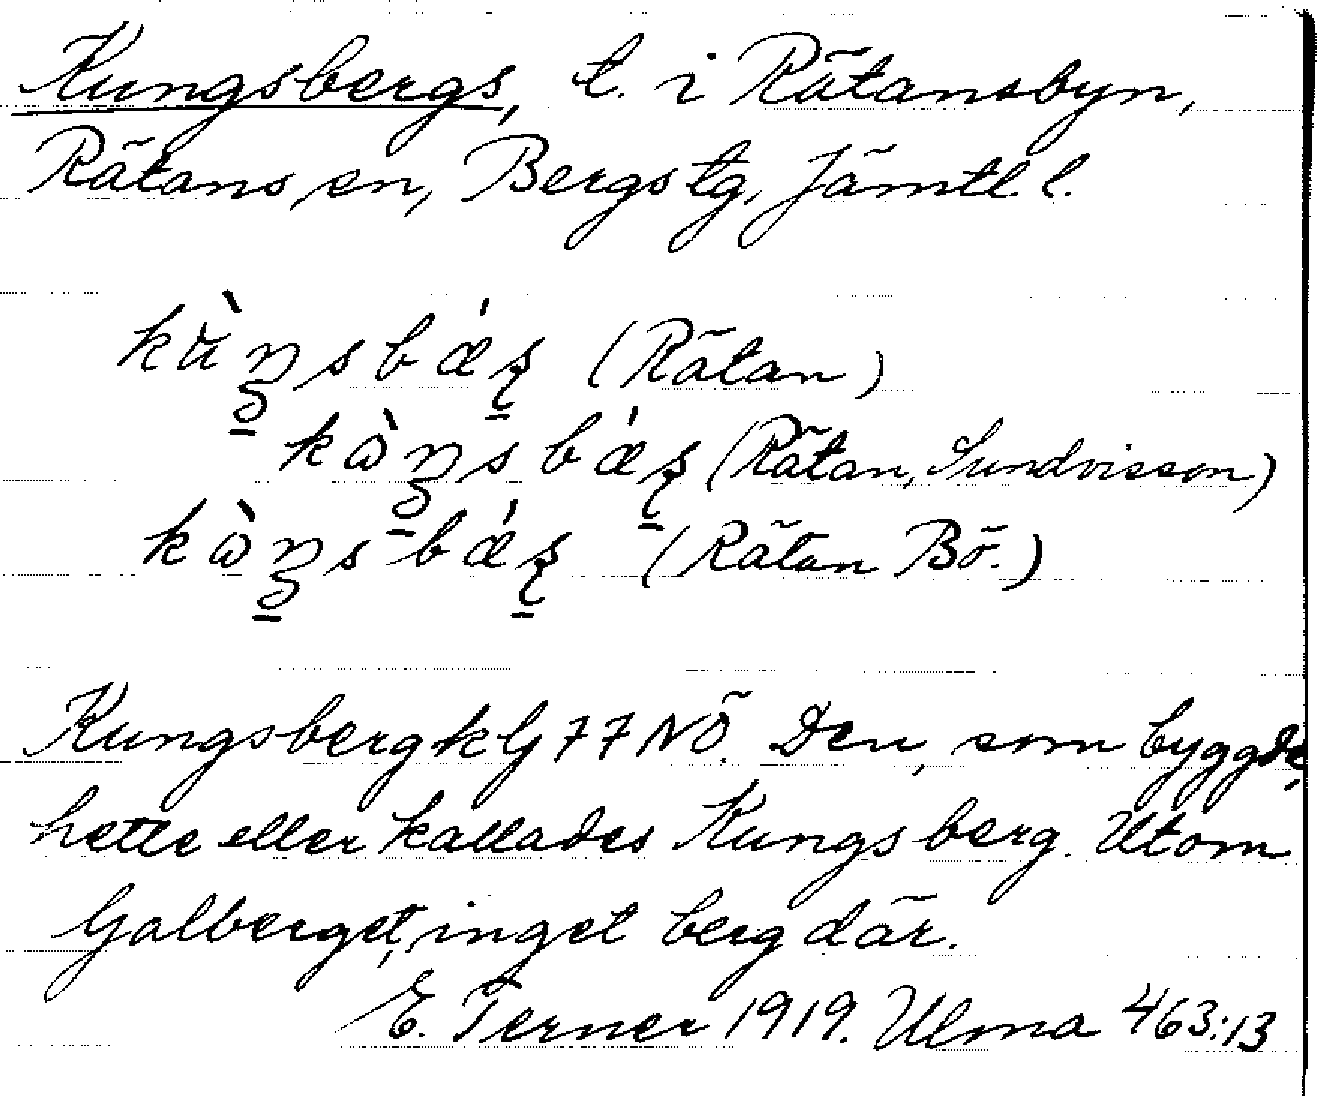 Kungsbergs, t. i Rätansbyn,
Rätans sn, Bergs tg, Jämtl l.
(Rätan)
(Rätan, Sundvisson)
(Rätan Bö.)
Kungsberg kG 77 NÖ. Den, som byggde,
hette eller kallades Kungsberg. Utom
Galberget, inget berg där.
E. Terner 1919. Ulma 463:13